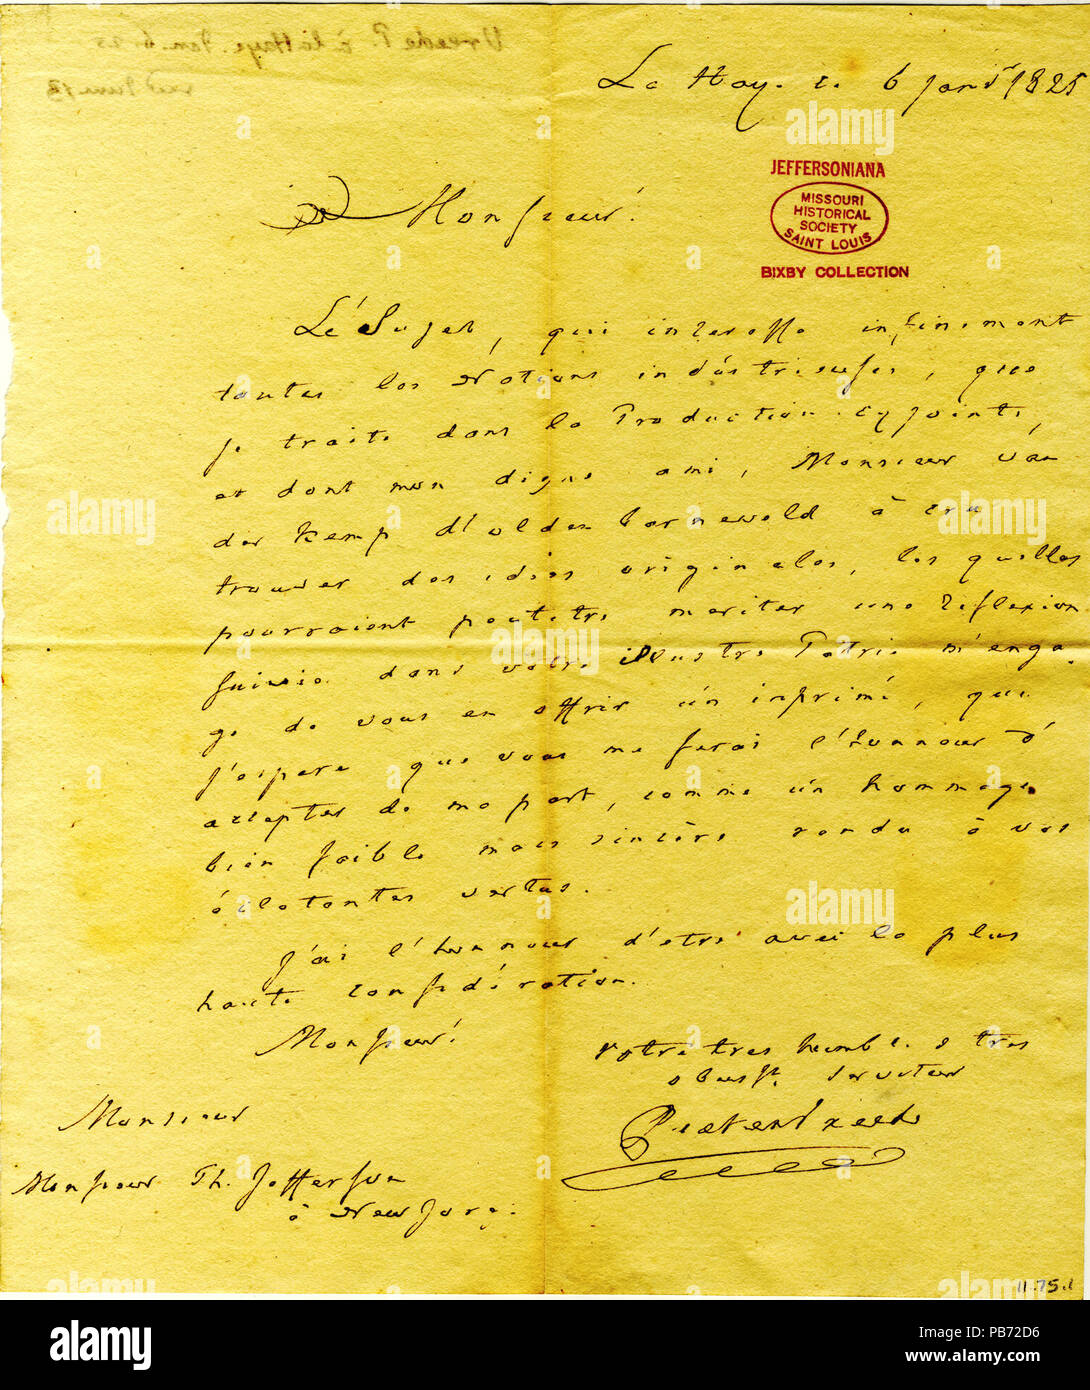 Vreede P. à la Haye. Jan. 6. 25
recd June 13
La Hay. 6 Janvr 1825
JEFFERSONIANA
MISSOURI
HISTORICAL
SOCIETY
SAINT LOUIS
BIXBY COLLECTION
Monsieur.
Le Sujet, qui interesse infiniment
toutes les Nations industrieuses, que
je traite dans la Production cy jointe,
et dont mon digne ami, Monsieur van
der Kemp d'olden barneveld à cru
trouver des idées originales, les quelles
pourraient peutetre meriter une reflexion
suivie dans vôtre illustre Patrie m'enga
ge de vous en offrir ún imprimé, que
j'espere que vous me feres l'hunnour d'
accepter de ma part, comme ún hommage
bien foible mais sincère rendu à vos
éclatantes vertus.
j'ai l'hunnour d'etre avec la plus
haute consideration.
Monsieur!
votre tres humble & tres
obeist. serviteur
Pieter Vreede
Monsieur
Monsieur Th. Jefferson
à New Jorc.
11.75.1
alamy
a
PB72D6
www.alamy.com